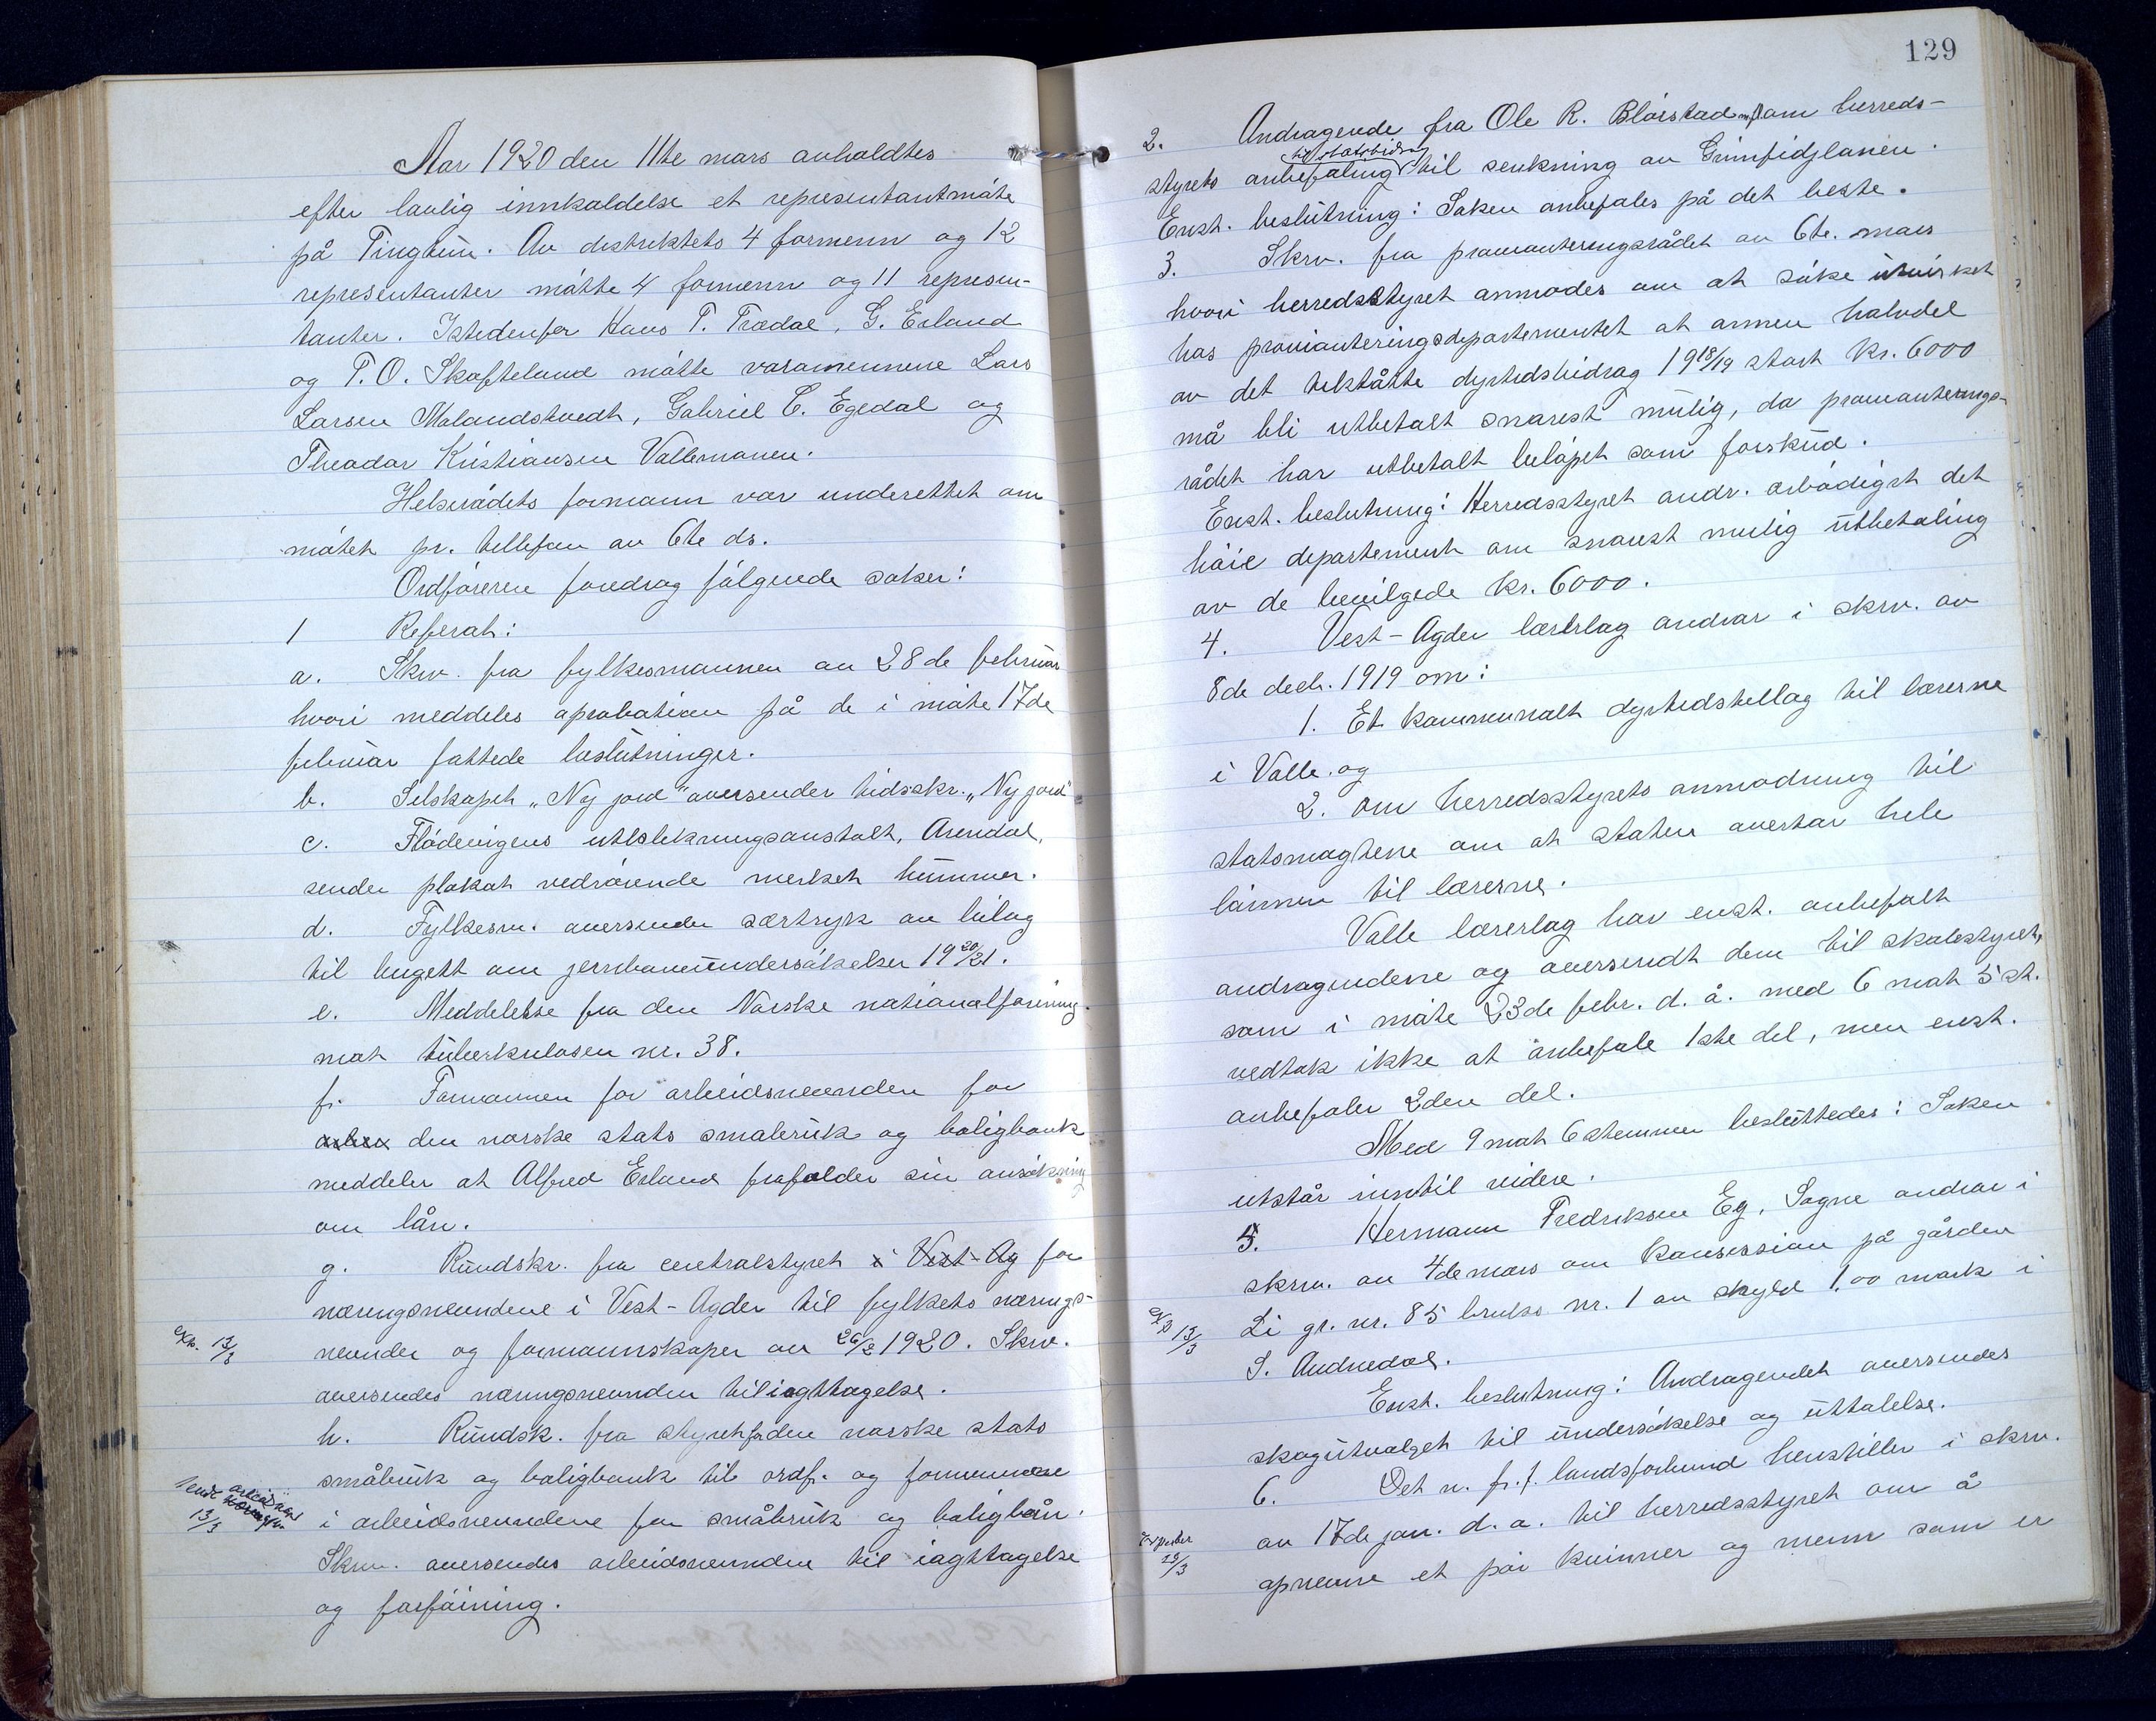 Aar 1920 den 11te mars avholdtes
efter lovlig innkaldelse et representantmøte
på Tingtun. Av distriktets 4 formenn og 12
representanter møtte 4 formenn og 11 represen-
tanter. Istedenfor Hans T. Trædal, G. Erland
og T. O. Skofteland møtte varamennene Lars
Larsen Molandstvedt, Gabriel C. Egedal og
Theodor Kristiansen Vallemonen.
Helserådets formann var underettet om
møtet pr. tellefon av 6te ds.
Ordføreren foredrog følgende saker:
1 Referat:
a. Skrv. fra fylkesmannen av 28de februar
hvori meddeles aprobation på de i møte 17de
februar fattede beslutninger.
b. Selskapet "Ny jord" oversender tidsskr. "Ny jord"
c. Flødevigens utklekningsanstalt, Arendal,
sender plakat vedrørende merket hummer.
d. Fylkesm. oversender særtryk av bilag
til bugett om jernbaneundersøkelser 1920/21.
e. Meddelelse fra den Norske nationalforening
mot tuberkulosen nr. 38.
f. Formannen for arbeidsnevnden for
den norske stats småbruk og boligbank
meddeler at Alfred Erland frafalder sin ansøkning
om lån.
g. Rundskr. fra centralstyret i Vest-Ag for
næringsnevndene i Vest-Agder til fylkets nærings-
exp. 13/3 nevnder og formannskaper av 26/2 1920. Skrv.
oversendes næringsnevnden til iagttagelse.
h. Rundsk. fra styret for den norske stats
småbruk og boligbank til ordf. og formennene
13/3 i arbeidsnevndene for småbruk og boliglån.
Skrv. oversendes arbeidsnevnden til iagttagelse
og forføining.
129
2. Andragende fra Ole R. Bløistad m.fl. om herreds-
til statsbidrag
styrets anbefaling til senkning av Grimfidjlonen.
Enst. beslutning: Saken anbefales på det beste.
3. Skrv. fra provianteringsrådet av 6te. mars
hvori herredsstyret anmodes om at søke utvirket
hos provianteringsdepartementet at annen halvdel
av det tilståtte dyrtidsbidrag 1918/19 stort kr. 6000
må bli utbetalt snarest mulig, da provianterings-
rådet har utbetalt beløpet som forskud.
Enst. beslutning: Herredsstyret andr. ærbødigst det
høie departement om snarest mulig utbetaling
av de bevilgede kr. 6000.
4. Vest-Agder lærerlag andrar i skrv. av
8de decb. 1919 om:
1. Et kommunalt dyrtidstillag til lærerne
i Valle. og
2. om herredsstyrets anmodning til
statsmagtene om at staten overtar hele
lønnen til lærerne.
Valle lærerlag har enst. anbefalt
andragendene og oversendt dem til skolestyret,
som i møte 23de febr. d. å. med 6 mot 5 st.
vedtok ikke at anbefale 1ste del, men enst.
anbefaler 2den del.
Med 9 mot 6 stemmer besluttedes: Saken
utstår inntil videre.
5. Hermann Fredriksen Eg, Søgne andrar i
skrv. av 4de mars om konsession på gården
exp 13/3 Li gr. nr. 85 bruks nr. 1 av skyld 1,00 mark i
S. Audnedal.
Enst. beslutning: Andragendet oversendes
skogutvalget til undersøkelse og uttalelse.
6. Det n. fr. f. landsforbund henstiller i skrv.
av 17de jan. d. a. til herredsstyret om å
13/3 opnevne et par kvinner og menn som er